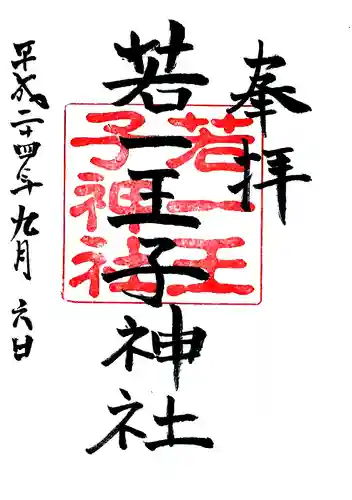 奉拝
若一王子神社
若一王
子神社
平成二十四年九月六日